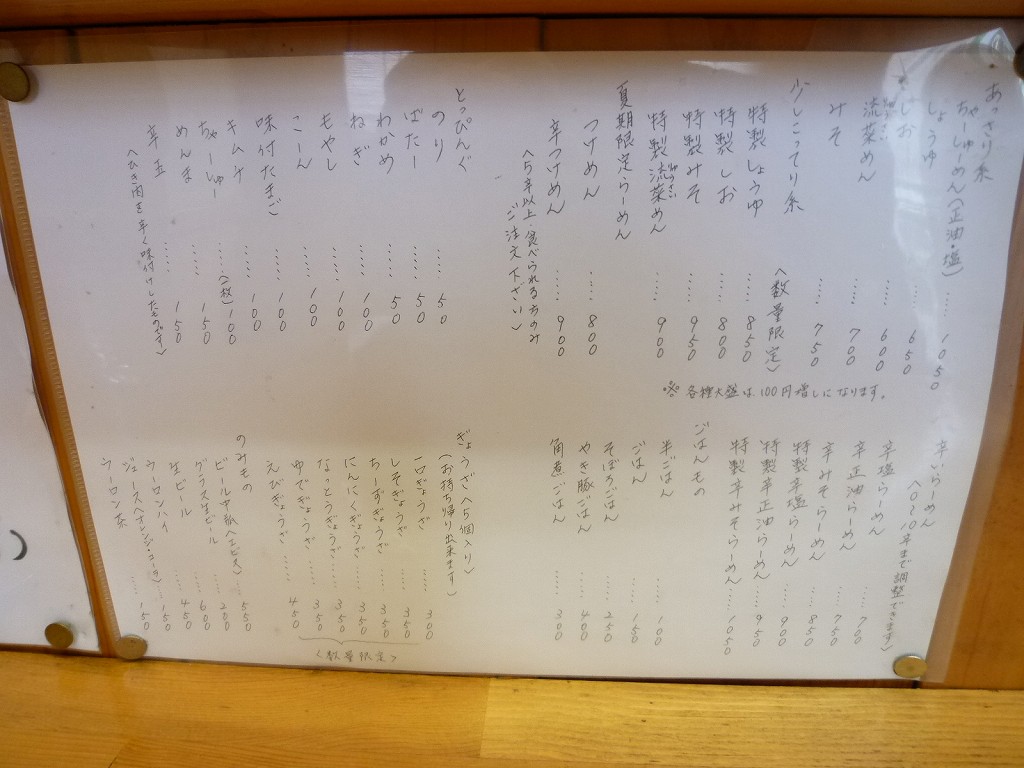 あっさり系
ちゃーしゅーめん(正油・塩) ..... 1050
しょうゆ ..... 650
しお ..... 600
流菜めん ..... 700
みそ ..... 750
少しこってり系 〈数量限定〉
特製しょうゆ ..... 850
特製しお ..... 800
特製みそ ..... 950
特製流菜めん ..... 900
夏期限定らーめん
つけめん ..... 800
辛つけめん ..... 900
〈5辛以上、食べられる方のみ
ご注文下さい〉
とっぴんぐ
のり ..... 50
ばたー ..... 50
わかめ ..... 50
ねぎ ..... 100
もやし ..... 100
こーん ..... 100
味付たまご ..... 100
キムチ ..... 100
ちゃーしゅー ..... (1枚)100
めんま ..... 150
辛玉 ..... 150
〈ひき肉を辛く味付けしたものです〉
※ 各種大盛は100円増しになります。
辛いらーめん
〈0〜10辛まで調整できます〉
辛塩らーめん ..... 700
辛正油らーめん ..... 750
辛みそらーめん ..... 850
特製辛塩らーめん ..... 900
特製辛正油らーめん ..... 950
特製辛みそらーめん ..... 1050
ごはんもの
半ごはん ..... 100
ごはん ..... 150
そぼろごはん ..... 250
やき豚ごはん ..... 400
角煮ごはん ..... 300
ぎょうざ〈5個入り〉
(お持ち帰り出来ます)
一口ぎょうざ ..... 300
しそぎょうざ ..... 350
ちーずぎょうざ ..... 350
にんにくぎょうざ ..... 350
なっとうぎょうざ ..... 350
ゆでぎょうざ ..... 350
えびぎょうざ ..... 450
〈数量限定〉
のみもの
ビール中瓶〈エビス〉 ..... 550
グラス生ビール ..... 200
生ビール ..... 600
ウーロンハイ ..... 450
ジュース〈オレンジ・コーラ〉 ..... 150
ウーロン茶 ..... 150